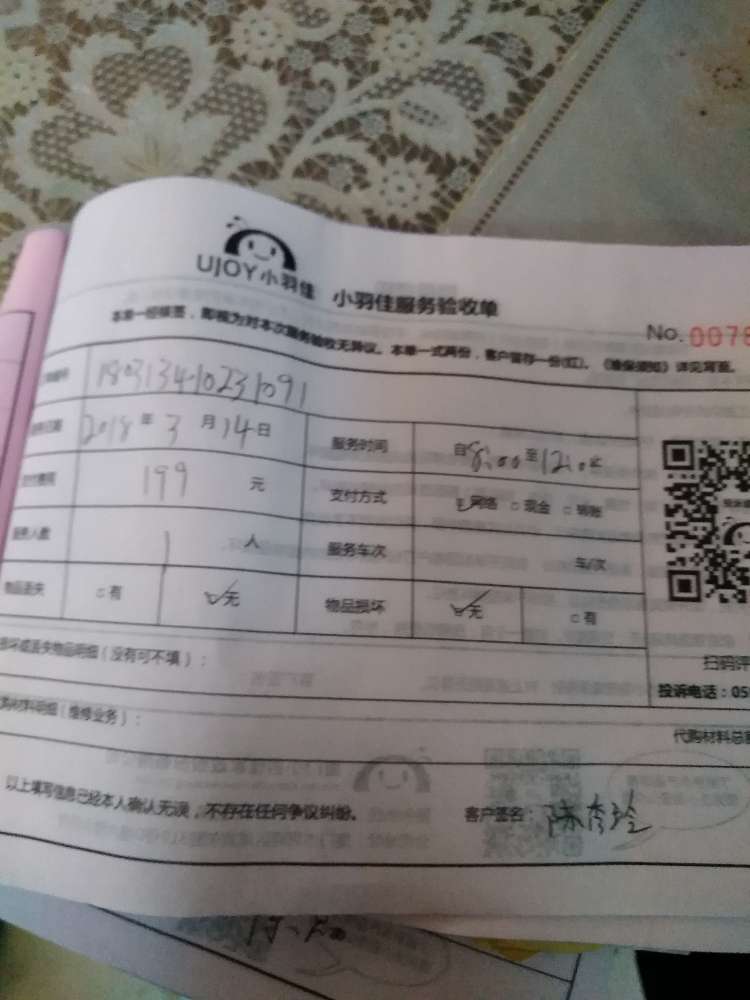 UJOY小羽佳 小羽佳服务验收单
No. 0078
本单一经核签，即视为对本次服务验收无异议。本单一式两份，客户留存一份(红)。《维保须知》详见背面。
编号 180313410231091
日期 2018年3月14日 服务时间 自8:00至12:00
支付费用 199元 支付方式 网络 □现金 □转账
服务人数 1人 服务车次 车/次
物品丢失 □有 ☑无 物品损坏 ☑无 □有
损坏或丢失物品明细（没有可不填）：
扫码评
投诉电话：05
购材料明细（维修业务）：
代购材料总
以上填写信息已经本人确认无误，不存在任何争议纠纷。 客户签名：陈杏玲